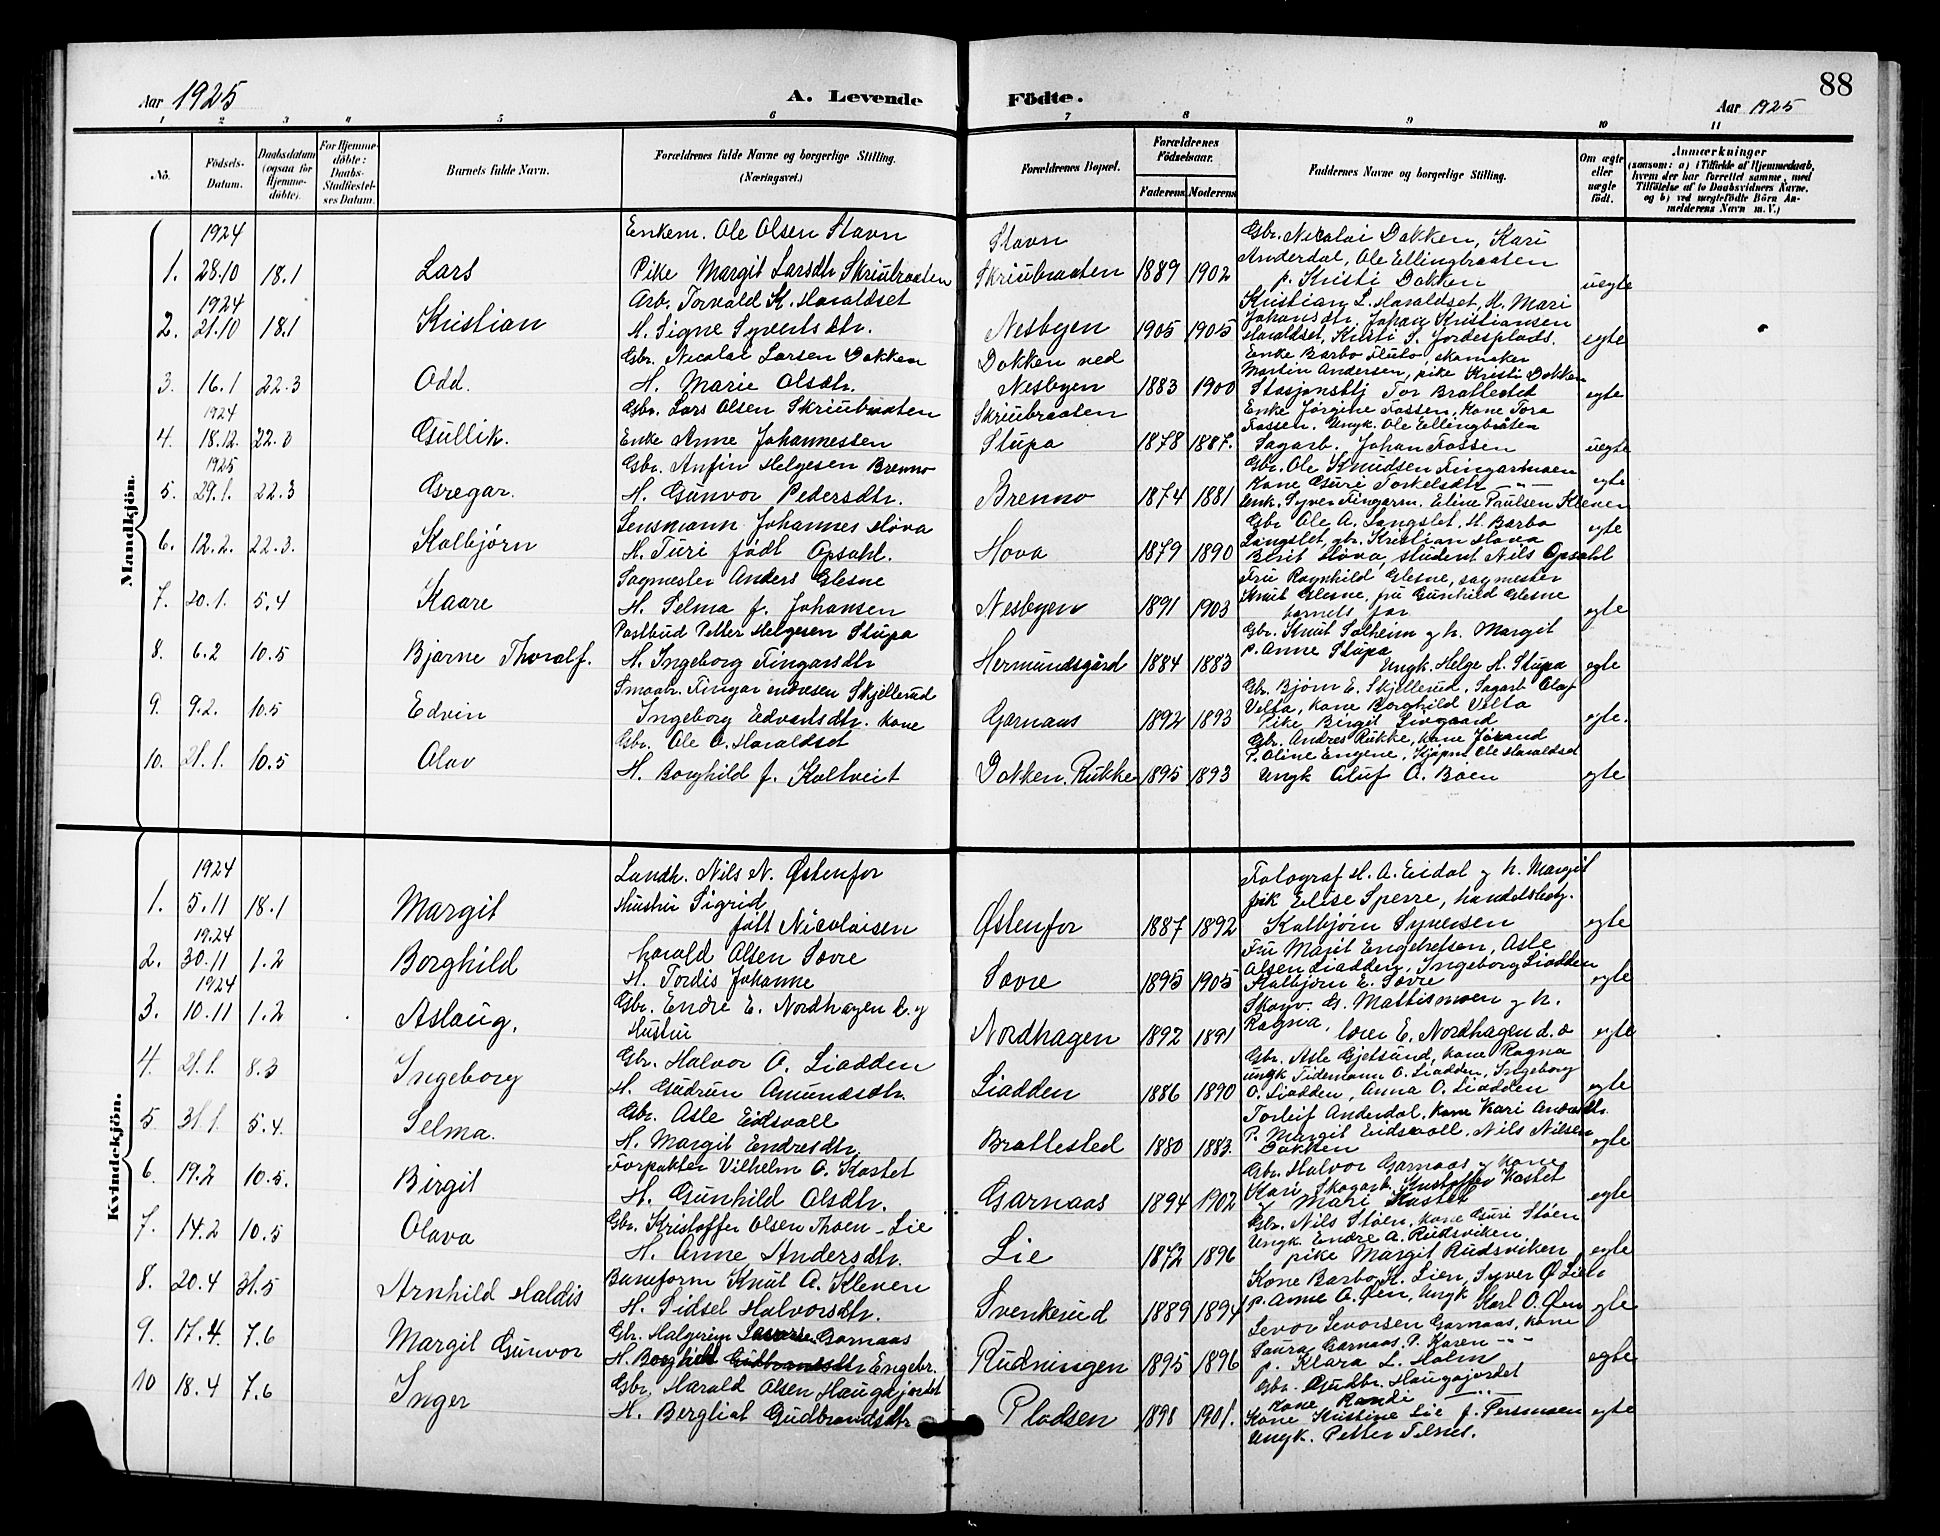 88
Aar 1925
A. Levende Födte.
Aar 1925
1 2 3 4 5 6 7 8 9 10 11
No. Födsels-Datum. Daabsdatum (ogsaa for Hjemmedöbte). For Hjemmedöbte: Daabs-Stadfæstelses Datum. Barnets fulde Navn. Forældrenes fulde Navne og borgerlige Stilling. (Næringsvei.) Forældrenes Bopæl. Forældrenes Födselsaar. Faderens Moderens Faddernes Navne og borgerlige Stilling. Om ægte eller uægte födt. Anmærkninger
(saasom: a) i Tilfælde af Hjemmedaab, hvem der har forrettet samme, med Tilföielse af to Daabsvidners Navne, og b) ved uægtefödte Börn Anmelderens Navn m. V.)
Mandkjön.
1924
1. 28.10 18.1 Lars
Enkem. Ole Olsen Stavn
Pike Margit Larsdtr Skriubraaten
Stavn
Skriubraaten 1889 1902
Gbr. Nicolai Dokken, Kari
Anderdal, Ole Ellingbraaten
p. Kristi Dokken uegte
1924
2. 21.10 18.1 Kristian
Arb. Torvald K. Haraldset
H. Signe Syvertsdtr.
Nesbyen 1905 1905
Kristian L. Haraldset, H. Mari
Johansdtr, Johan Kristiansen
Haraldset, Kristi S. Jordesplads. egte
3. 16.1 22.3 Odd.
Gbr. Nicolai Larsen Dokken
H. Marie Olsdtr.
Dokken ved
Nesbyen 1883 1900
Enke Barbo Flulo, skomaker
Martin Andersen, pike Kristi Dokken
Stasjonsbtj Tor Brattested egte
1924
4. 18.12. 22.3 Gullik.
Gbr. Lars Olsen Skriubraaten
Enke Anne Johannessen
Skriubraaten
Stupa 1878 1887.
Enke Jørgine Fossen, Kone Tora
Fossen, Ungk. Ole Ellingbråten
Sagarb. Johan Fossen uegte
1925
5. 29.1. 22.3 Gregar.
Gbr. Anfin Helgesen Brenno
H. Gunvor Pedersdtr.
Brenno 1874 1881
Gbr. Ole Knudsen Fingarmoen
Kone Guri Torkelsdtr —"—
Unk. Syver Fingarm. Eline Paulsen Kleven egte
6. 12.2. 22.3. Kolbjørn
Lensmann Johannes Hova
H. Turi født Opsahl.
Hova 1879 1890
Gbr Ole A. Langslet, H. Barbo
Langslet, gbr. Kristian Hova
Berit Hova, student Nils Opsahl egte
7. 20.1. 5.4 Kaare
Sagmester Anders Glesne
H. Selma f. Johansen
Nesbyen 1891 1903
Fru Ragnhild Glesne, sagmester
Knut Glesne, fru Gunhild Glesne
barnets far egte
8. 6.2 10.5 Bjarne Thoralf.
Postbud Petter Helgesen Stupa
H. Ingeborg Fingarsdtr
Hermundsgård 1884 1883
Gbr. Knut Solheim og h. Margit
p. Anne Stupa
Ungk. Helge H. Stupa egte
9. 9.2. 10.5 Edvin
Smaabr. Fingar Endresen Skjellerud
Ingeborg Edvartsdtr. kone
Garnaas 1892 1893
Gbr. Bjørn E. Skjellerud. Sagarb Olaf
Velta, kone Borghild Velta
Pike Birgit Livgaard egte.
10. 21.1. 10.5 Olav
Gbr. Ole O. Haraldset
H. Borghild f. Kaltveit
Dokken, Rukke 1895 1893
Gbr. Andres Rukke, kone Jørand
P. Oline Engene, Kjøpm. Ole Haraldset
Ungk Oluf O. Boen egte
Kvindekjön.
1924
1. 5.11 18.1 Margit
Landh. Nils N. Østenfor
Hustru Sigrid
født Nicolaisen
Østenfor 1887 1892
Fotograf H. A. Eidal og h. Margit
frk Elise Sperre, handelsbetj.
Kolbjørn Syversen egte
1924
2. 30.11 1.2 Borghild
Harald Olsen Sovre
H. Tordis Johanne
Sovre 1895 1905
Fru Marit Engebretsen, Asle
Olsen Liodden, Ingeborg Liodden
Kolbjørn E. Sovre egte
1924
3. 10.11 1.2 Aslaug.
Gbr. Endre E. Nordhagen d.y
Hustru
Nordhagen 1892 1891
Skogv. G. Mattismoen og h.
Ragna, lærer E. Nordhagen d.e egte
4. 21.1. 8.3 Ingeborg
Gbr. Halvor O. Liodden
H. Gudrun Amundsdtr.
Liodden 1886 1890
Gbr. Asle Gjetsund, kone Ragna
ungk Tidemann O. Liodden, Ingeborg
O. Liodden, Anna O. Liodden egte
5. 31.1. 5.4. Selma.
Gbr. Asle Eidsvoll
H. Margit Endresdtr.
Brattested 1880 1883.
Torleif Anderdal, kone Kari Andersdtr.
P. Margit Eidsvoll, Nils Nilsen
Dokken egte
6. 19.2 10.5. Birgit
Forpakter Vilhelm O. Kastet
H. Gunhild Olsdtr.
Garnaas 1894 1902
Gbr. Halvor Garnaas og kone
Kari, Skogarb. Kristoffer Kastet
og Mari Kastet egte
7. 14.2 10.5 Olava
Gbr. Kristoffer Olsen Thoen - Lie
H. Anne Andersdtr.
Lie 1872 1896
Gbr. Nils Støen, kone Guri Støen
Ungk. Endre A. Rudsviken,
pike Margit Rudsviken egte
8. 20.4 31.5 Arnhild Haldis
Baneform Knut A. Kleven
H. Sidsel Halvorsdtr.
Svenkerud 1889 1894
Kone Barbo K. Lien, Syver Ø Lien
p. Anne O. Øen, Ungk Karl O. Øen egte
9. 17.4. 7.6 Margit Gunvor
Gbr. Halgrim Garnaas
H. Borghild Engebr.
Rudningen 1895 1896
Sevor Sevorsen Garnaas, kone
Laura Garnaas, P. Karen —"—
p. Klara L. Holm egte
10 18.4 7.6 Inger
Gbr. Harald Olsen Haugajordet
H. Bergliot Gudbrandsdtr
Pladsen 1898 1901.
Gbr. Gudbr. Haugajordet
kone Randi —"—
Kone Kristine Lie f. Persmoen
Ungk. Petter Tilset. egte